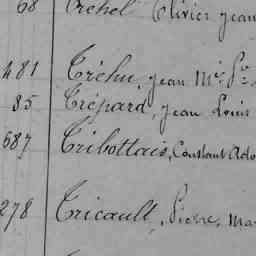 68 Tréhel Olivier Jean
481 Tréhu, Jean M.
85 Trépard, Jean Louis
587 Tribottais, Constant Ado
278 Tricault, Pierre, Ma